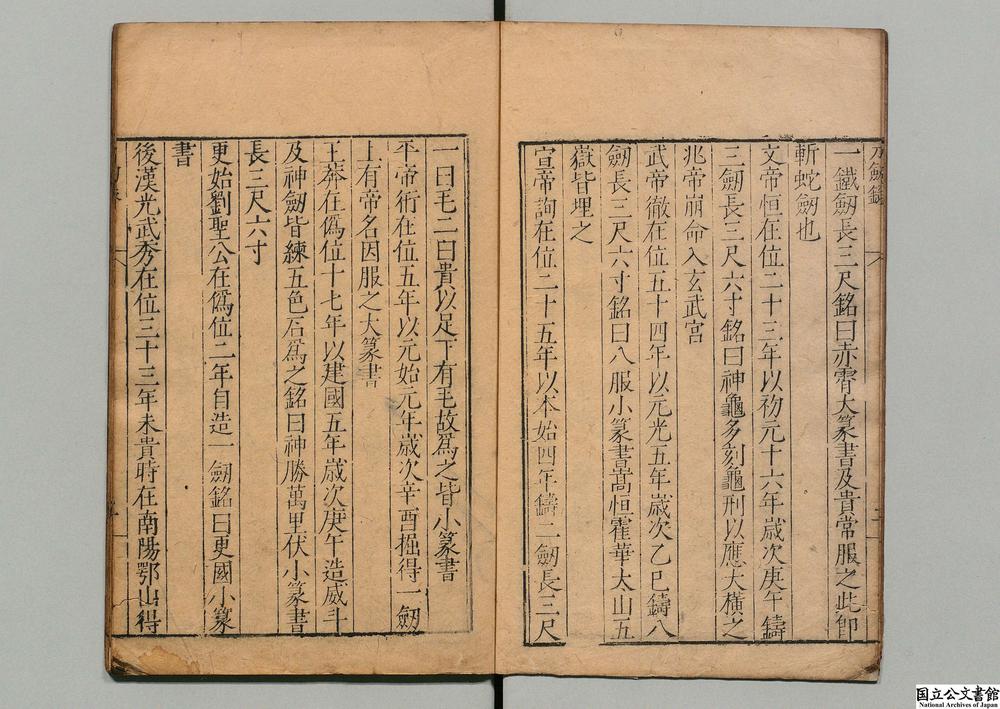 刀劔錄
一鐵劔長三尺銘曰赤霄大篆書及貴常服之此卽
斬蛇劔也
文帝恒在位二十三年以初元十六年歲次庚午鑄
三劔長三尺六寸銘曰神龜多刻龜刑以應大橫之
兆帝崩命入玄武宮
武帝徹在位五十四年以元光五年歲次乙巳鑄八
劔長三尺六寸銘曰八服小篆書嵩恒霍華太山五
嶽皆埋之
宣帝詢在位二十五年以本始四年鑄二劔長三尺
一曰毛二曰貴以足下有毛故爲之皆小篆書
平帝衎在位五年以元始元年歲次辛酉掘得一劔
上有帝名因服之大篆書
王莽在僞位十七年以建國五年歲次庚午造威斗
及神劔皆練五色石爲之銘曰神勝萬里伏小篆書
長三尺六寸
更始劉聖公在僞位二年自造一劔銘曰更國小篆
書
後漢光武秀在位三十三年未貴時在南陽鄂山得
国立公文書館
National Archives of Japan